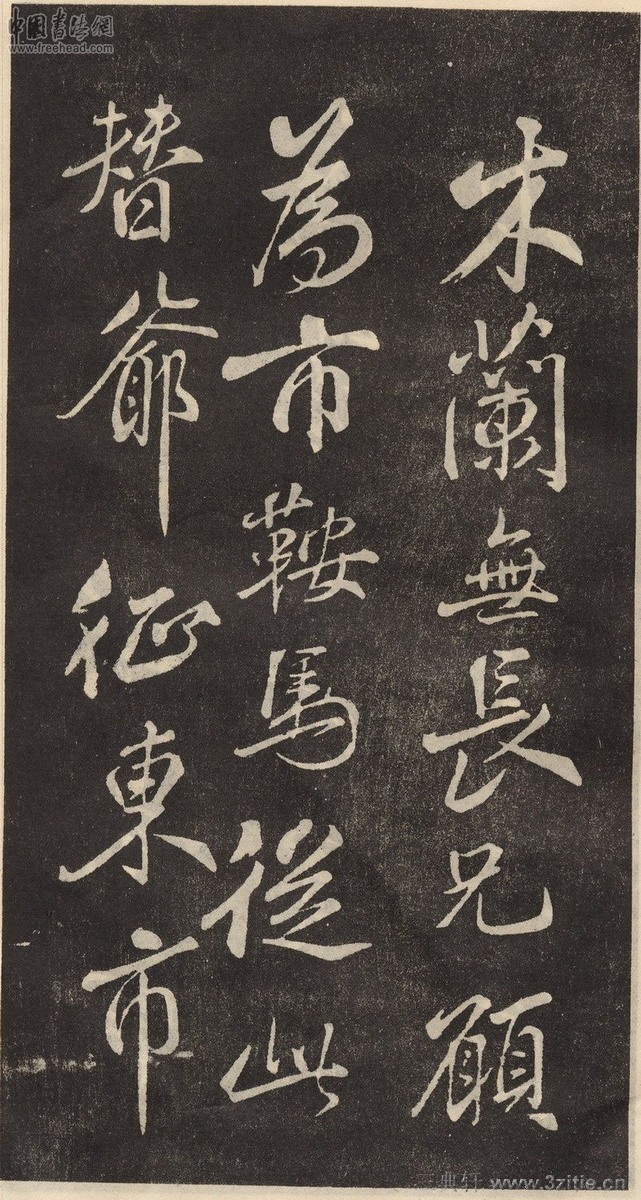 中國书法網
www.freehead.com
木蘭無長兄願
為市鞍馬從此
替爺征東市
三典轩 www.3zitie.cn